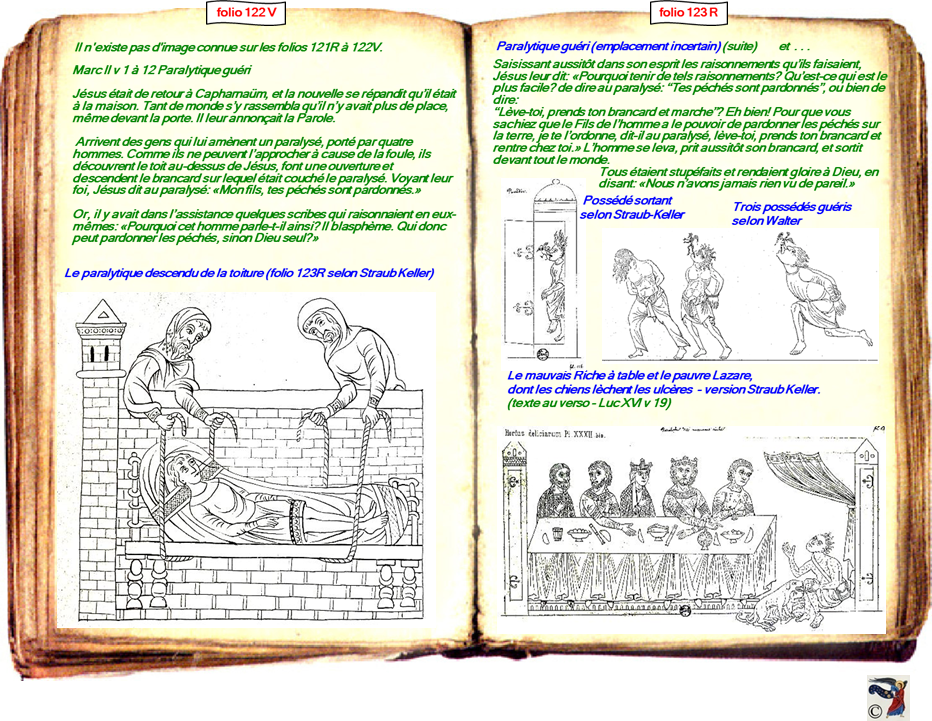 folio 122 V
Il n'existe pas d'image connue sur les folios 121R à 122V.
Marc II v 1 à 12 Paralytique guéri
Jésus était de retour à Capharnaüm, et la nouvelle se répandit qu'il était
à la maison. Tant de monde s'y rassembla qu'il n'y avait plus de place,
même devant la porte. Il leur annonçait la Parole.
Arrivent des gens qui lui amènent un paralysé, porté par quatre
hommes. Comme ils ne peuvent l'approcher à cause de la foule, ils
découvrent le toit au-dessus de Jésus, font une ouverture et
descendent le brancard sur lequel était couché le paralysé. Voyant leur
foi, Jésus dit au paralysé: «Mon fils, tes péchés sont pardonnés.»
Or, il y avait dans l'assistance quelques scribes qui raisonnaient en eux-
mêmes: «Pourquoi cet homme parle-t-il ainsi? Il blasphème. Qui donc
peut pardonner les péchés, sinon Dieu seul?»
Le paralytique descendu de la toiture (folio 123R selon Straub Keller)
folio 123 R
Paralytique guéri (emplacement incertain) (suite) et . . .
Saisissant aussitôt dans son esprit les raisonnements qu'ils faisaient,
Jésus leur dit: «Pourquoi tenir de tels raisonnements? Qu'est-ce qui est le
plus facile? de dire au paralysé: "Tes péchés sont pardonnés", ou bien de
dire:
"Lève-toi, prends ton brancard et marche"? Eh bien! Pour que vous
sachiez que le Fils de l'homme a le pouvoir de pardonner les péchés sur
la terre, je te l'ordonne, dit-il au paralysé, lève-toi, prends ton brancard et
rentre chez toi.» L'homme se leva, prit aussitôt son brancard, et sortit
devant tout le monde.
Tous étaient stupéfaits et rendaient gloire à Dieu, en
disant: «Nous n'avons jamais rien vu de pareil.»
Possédé sortant
selon Straub-Keller
Trois possédés guéris
selon Walter
Le mauvais Riche à table et le pauvre Lazare,
dont les chiens lèchent les ulcères - version Straub Keller.
(texte au verso - Luc XVI v 19)
Hortus deliciarum Pl XXXII bis.
©